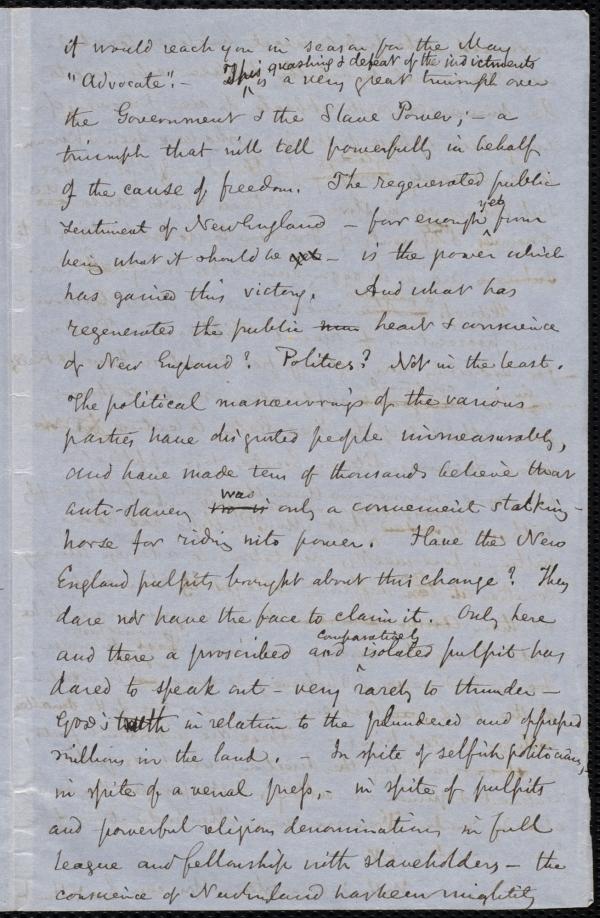 it would reach you in season for the May
"Advocate".— This quashing & defeat of the indictments is a very great triumph over
the Government & the Slave Power; — a
triumph that will tell powerfully in behalf
of the cause of freedom. The regenerated public
sentiment of New England — far enough yet from
being what it should be yet — is the power which
has gained this victory. And what has
regenerated the public heart & conscience
of New England? Politics? Not in the least.
The political manœuvrings of the various
parties have disgusted people immeasurably,
and have made tens of thousands believe that
anti-slavery was only a convenient stalking-
horse for riding into power. Have the New
England pulpits brought about this change? They
dare not have the face to claim it. Only here
and there a proscribed and comparatively isolated pulpit has
dared to speak out — very rarely to thunder —
God's truth in relation to the plundered and oppressed
millions in the land. — In spite of selfish politicians,—
in spite of a venal press,— in spite of pulpits
and powerful religious denominations in full
league and fellowship with slaveholders — the
conscience of New England has been mightily